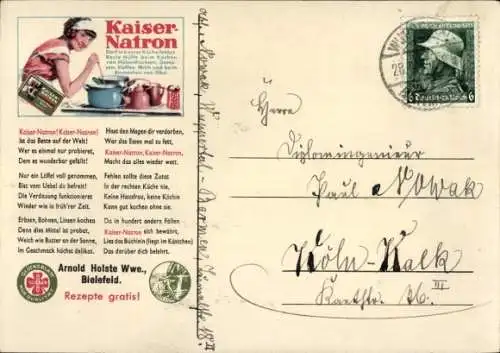 Kaiser-
Natron
Kaiser-Natron! Kaiser-Natron!
Ist das Beste auf der Welt!
Wer es einmal nur probieret,
Dem es wunderbar gefällt!
Nur ein Löffel voll genommen,
Bist vom Uebel du befreit!
Die Verdauung funktionieret
Wieder wie in früh'rer Zeit.
Erbsen, Bohnen, Linsen kochen
Denn dies Mittel ist probat,
Weich wie Butter an der Sonne,
Im Geschmack höchst delikat.
Hast den Magen dir verdorben,
War das Essen mal zu fett,
Kaiser-Natron, Kaiser-Natron,
Macht das alles wieder wett.
Fehlen sollte diese Zutat
In der rechten Küche nie,
Keine Hausfrau, keine Köchin
Kann gut kochen ohne sie.
Da in hundert andern Fällen
Kaiser-Natron sich bewährt,
Lies das Büchlein (liegt im Kästchen)
Das darüber dich belehrt.
Arnold Holste Wwe.,
Bielefeld.
Rezepte gratis!
Abs. Nowak, Wuppertal-Barmen,
6 Deutsches Reich 6
Herrn
Diplomingenieur
Paul Nowak
Köln-Kalk
Kantstr. 16 III